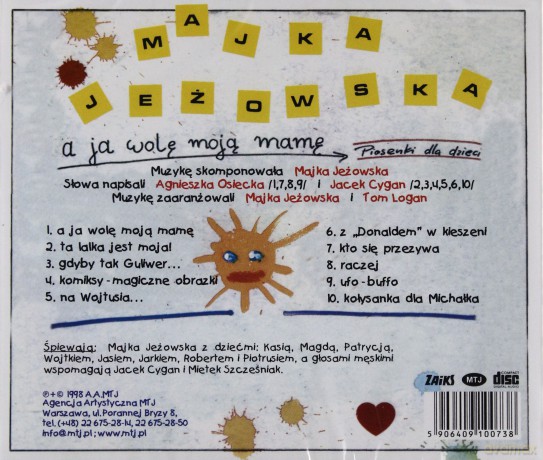 MAJKA
JEŻOWSKA
a ja wolę moją mamę
Piosenki dla dzieci
Muzykę skomponowała Majka Jeżowska
Słowa napisali Agnieszka Osiecka /1,7,8,9/ i Jacek Cygan /2,3,4,5,6,10/
Muzykę zaaranżowali Majka Jeżowska i Tom Logan
1. a ja wolę moją mamę
2. ta lalka jest moja!
3. gdyby tak Guliwer...
4. komiksy - magiczne obrazki
5. na Wojtusia...
6. z „Donaldem” w kieszeni
7. kto się przezywa
8. raczej
9. ufo-buffo
10. kołysanka dla Michałka
Śpiewają: Majka Jeżowska z dziećmi: Kasią, Magdą, Patrycją,
Wojtkiem, Jasiem, Jarkiem, Robertem i Piotrusiem, a głosami męskimi
wspomagają Jacek Cygan i Mietek Szcześniak.
℗+© 1998 A.A.MTJ
Agencja Artystyczna MTJ
Warszawa, ul.Porannej Bryzy 8,
tel.(+48) 22 675-28-14, 22 675-28-50
info@mtj.pl ; www.mtj.pl
ZAiKS
MTJ
COMPACT
disc
DIGITAL AUDIO
5 906409 100738